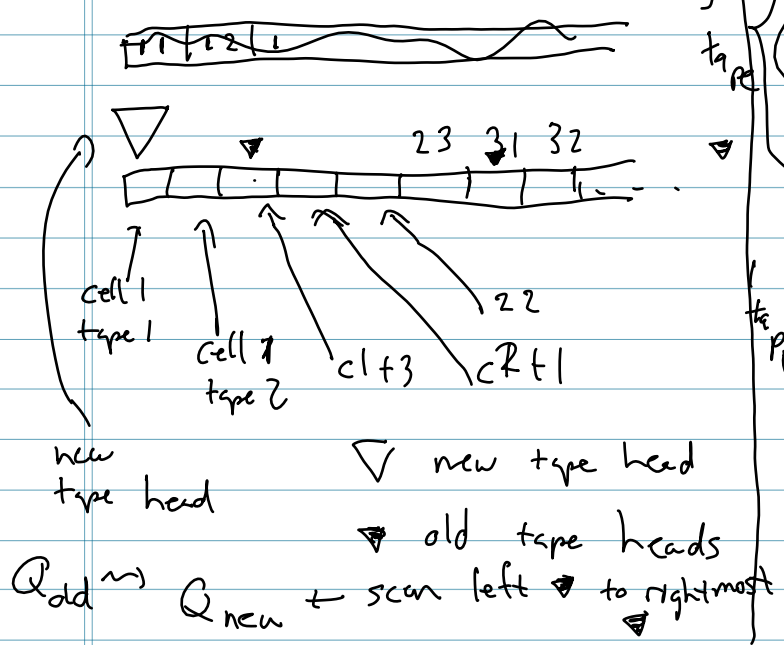 11 12 1
tape
23 31 32
cell 1
tape 1
cell 1
tape 2
c1 t3
c2 t1
22
new
tape head
new tape head
old tape heads
Qold ⇝ Qnew ← scan left ▼ to rightmost
▼